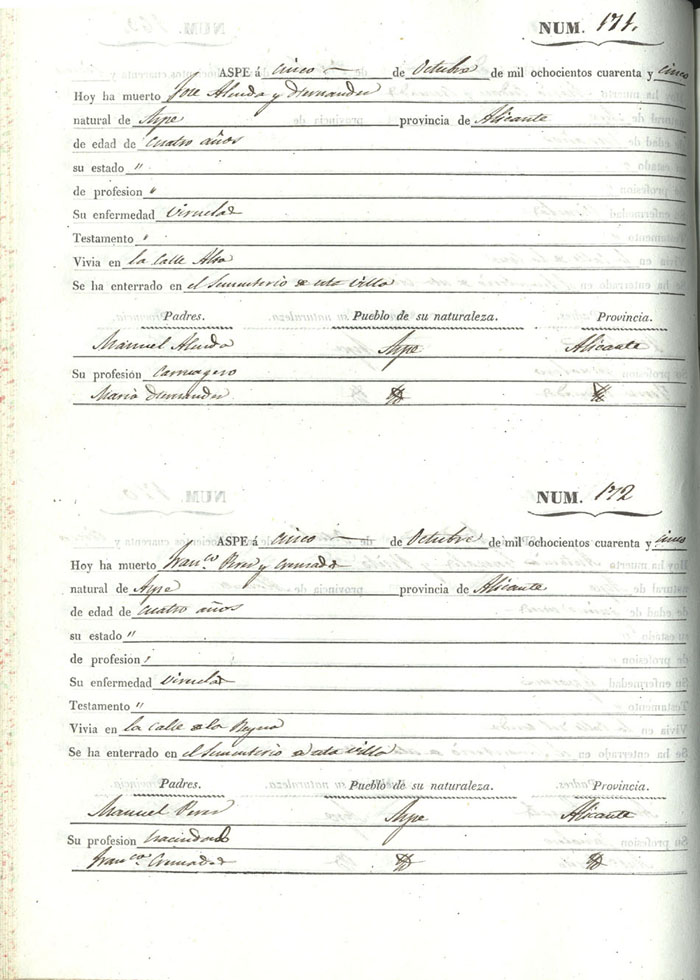 NUM. 171.
ASPE á cinco de Octubre de mil ochocientos cuarenta y cinco
Hoy ha muerto Jose Alenda y Hernandez
natural de Aspe provincia de Alicante
de edad de cuatro años
su estado "
de profesion "
Su enfermedad viruelas
Testamento "
Vivia en la Calle Alta
Se ha enterrado en el Sementerio de esta villa
Padres. Pueblo de su naturaleza. Provincia.
Manuel Alenda Aspe Alicante
Su profesion
Maria Hernandez
NUM. 172
ASPE á cinco de Octubre de mil ochocientos cuarenta y cinco
Hoy ha muerto Franco. Perez y Cremades
natural de Aspe provincia de Alicante
de edad de cuatro años
su estado "
de profesion "
Su enfermedad viruelas
Testamento "
Vivia en la calle de la
Se ha enterrado en el Sementerio de esta villa
Padres. Pueblo de su naturaleza. Provincia.
Manuel Perez Aspe Alicante
Su profesion hacendado
Franca. Cremades